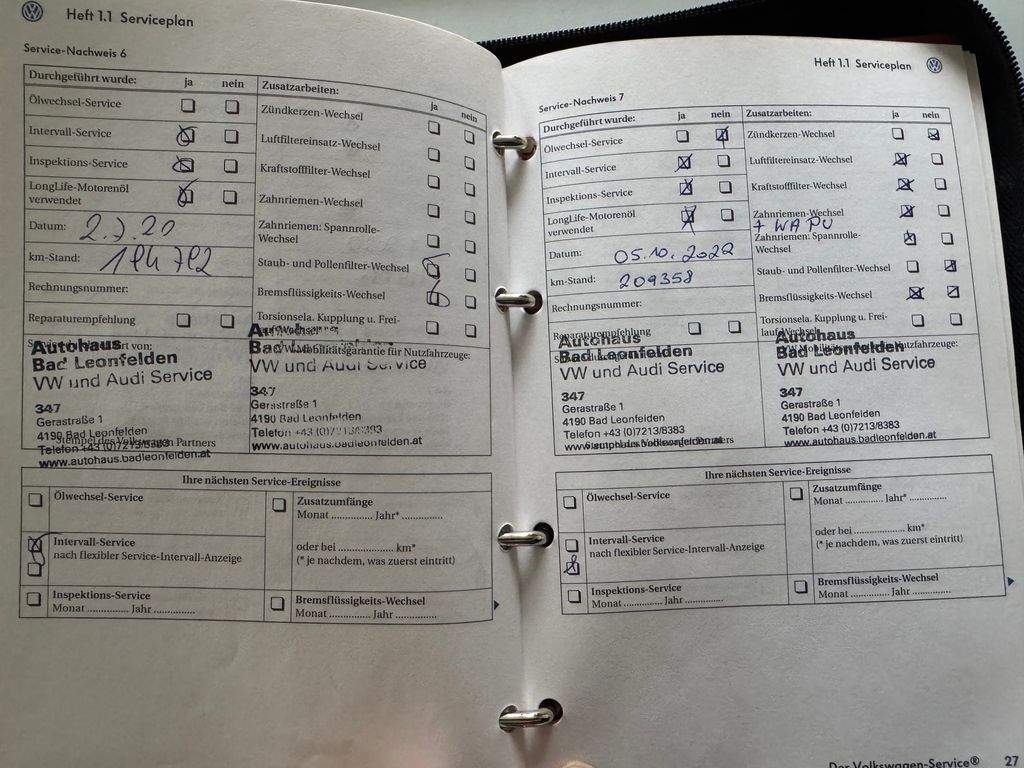 Heft 1.1 Serviceplan
Service-Nachweis 6
Durchgeführt wurde: ja nein
Ölwechsel-Service
Intervall-Service
Inspektions-Service
LongLife-Motorenöl
verwendet
Datum: 2.7.20
km-Stand: 194 792
Rechnungsnummer:
Reparaturempfehlung
Zusatzarbeiten: ja nein
Zündkerzen-Wechsel
Luftfiltereinsatz-Wechsel
Kraftstofffilter-Wechsel
Zahnriemen-Wechsel
Zahnriemen: Spannrolle-
Wechsel
Staub- und Pollenfilter-Wechsel
Bremsflüssigkeits-Wechsel
Torsionsela. Kupplung u. Frei-
Mobilitätsgarantie für Nutzfahrzeuge:
Autohaus
Bad Leonfelden
VW und Audi Service
347
Gerastraße 1
4190 Bad Leonfelden
Telefon +43 (0)7213/8383
Stempel des Volkswagen Partners
www.autohaus.badleonfelden.at
Autohaus
Bad
VW und Audi Service
347
Gerastraße 1
4190 Bad Leonfelden
Telefon +43 (0)7213/8383
www.autohaus.badleonfelden.at
Ihre nächsten Service-Ereignisse
Ölwechsel-Service
Intervall-Service
nach flexibler Service-Intervall-Anzeige
Inspektions-Service
Monat .............. Jahr ..............
Zusatzumfänge
Monat .............. Jahr* ..............
oder bei .................... km*
(* je nachdem, was zuerst eintritt)
Bremsflüssigkeits-Wechsel
Monat .............. Jahr ..............
Heft 1.1 Serviceplan
Service-Nachweis 7
Durchgeführt wurde: ja nein
Ölwechsel-Service
Intervall-Service
Inspektions-Service
LongLife-Motorenöl
verwendet
Datum: 05.10.2022
km-Stand: 209358
Rechnungsnummer:
Reparaturempfehlung
Zusatzarbeiten: ja nein
Zündkerzen-Wechsel
Luftfiltereinsatz-Wechsel
Kraftstofffilter-Wechsel
Zahnriemen-Wechsel
+ WAPU
Zahnriemen: Spannrolle-
Wechsel
Staub- und Pollenfilter-Wechsel
Bremsflüssigkeits-Wechsel
Torsionsela. Kupplung u. Frei-
Autohaus
Bad Leonfelden
VW und Audi Service
347
Gerastraße 1
4190 Bad Leonfelden
Telefon +43 (0)7213/8383
www.autohaus.badleonfelden.at
Autohaus
Bad Leonfelden
VW und Audi Service
347
Gerastraße 1
4190 Bad Leonfelden
Telefon +43 (0)7213/8383
www.autohaus.badleonfelden.at
Ihre nächsten Service-Ereignisse
Ölwechsel-Service
Intervall-Service
nach flexibler Service-Intervall-Anzeige
Inspektions-Service
Monat .............. Jahr ..............
Zusatzumfänge
Monat .............. Jahr* ..............
oder bei .................... km*
(* je nachdem, was zuerst eintritt)
Bremsflüssigkeits-Wechsel
Monat .............. Jahr ..............
Der Volkswagen-Service® 27